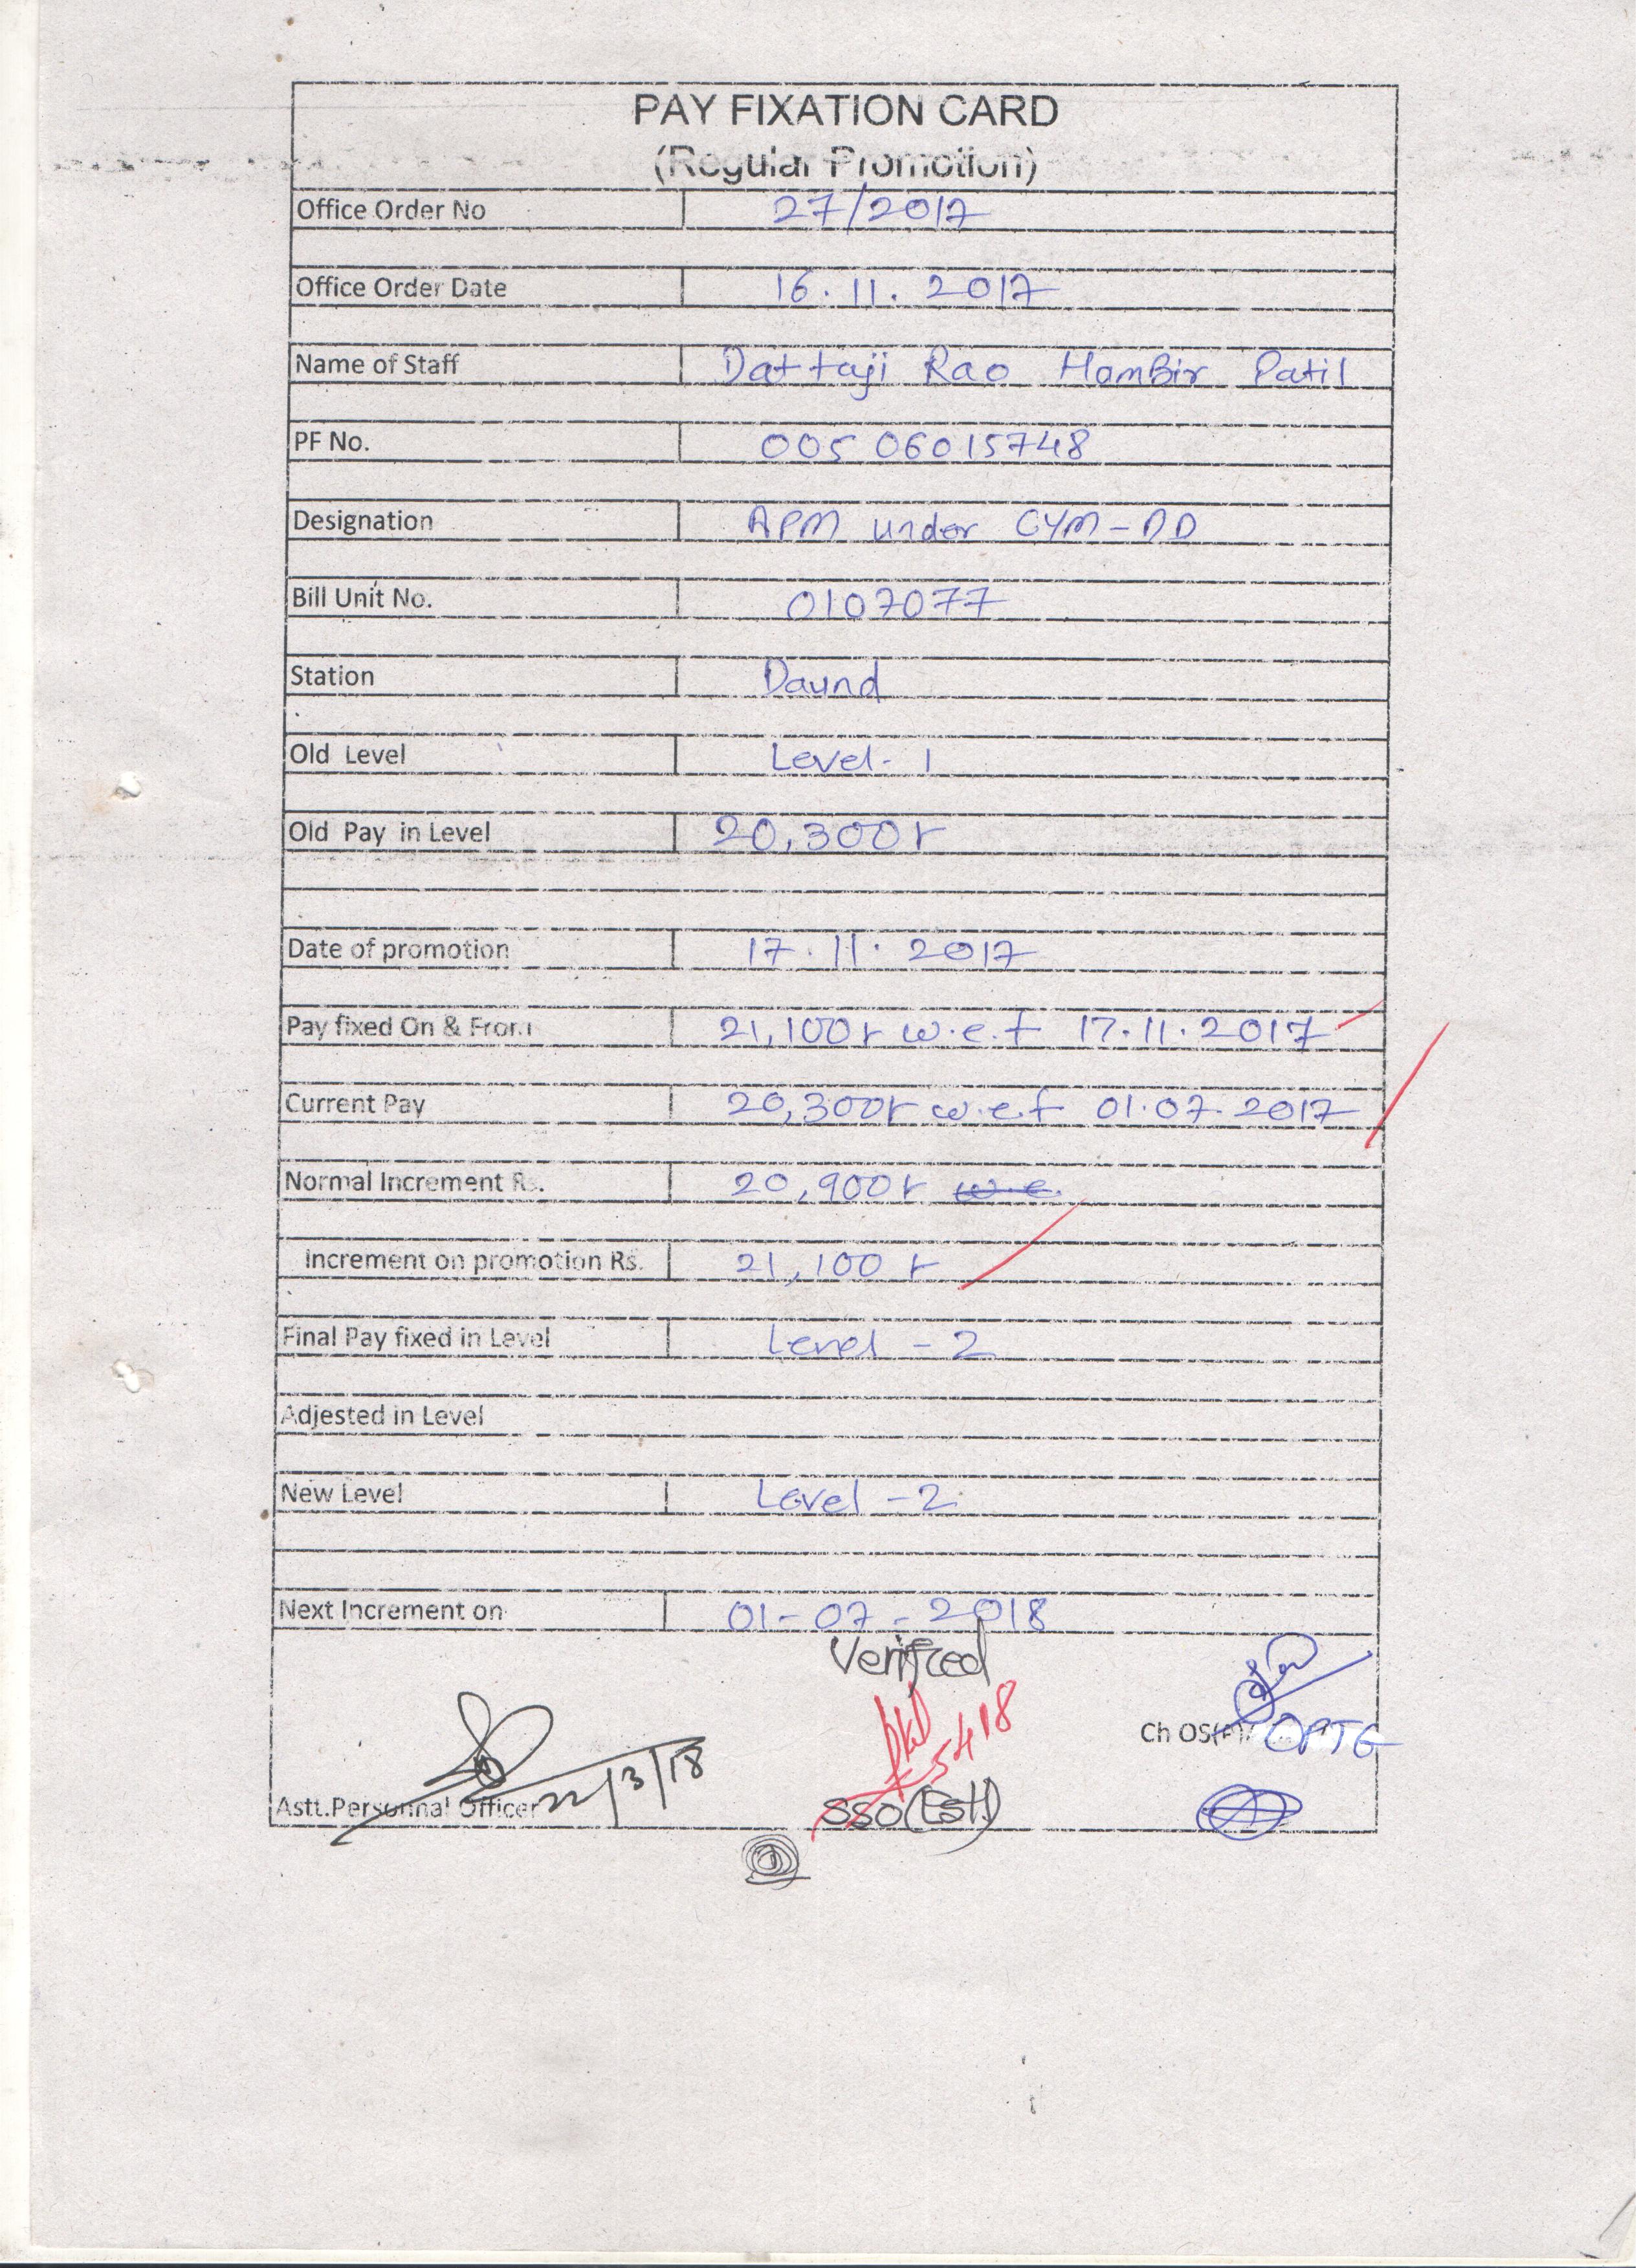 PAY FIXATION CARD
(Regular Promotion)
Office Order No 27/2017
Office Order Date 16.11.2017
Name of Staff Dattaji Rao HamBir Patil
PF No. 005 06015748
Designation APM under CYM-DD
Bill Unit No. 0107077
Station Daund
Old Level Level-1
Old Pay in Level 20,300/-
Date of promotion 17.11.2017
Pay fixed On & From 21,100/- w.e.f 17.11.2017
Current Pay 20,300/- w.e.f 01.07.2017
Normal Increment Rs. 20,900/- w.e.
Increment on promotion Rs. 21,100/-
Final Pay fixed in Level Level-2
Adjested in Level
New Level Level-2
Next Increment on 01-07-2018
Verified
5418
Ch OS(P)/ OPTG
22/3/18
Astt.Personnal Officer SSO(Estt)